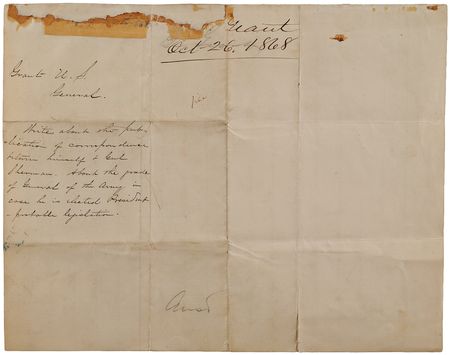 Grant
Oct 26. 1868
Grant U. S.
General.
Write about the pub-
lication of correspondence
between himself & Genl
Sherman. About the grade
of General of the Army in
case he is elected President
- probable legislation.
Ansd